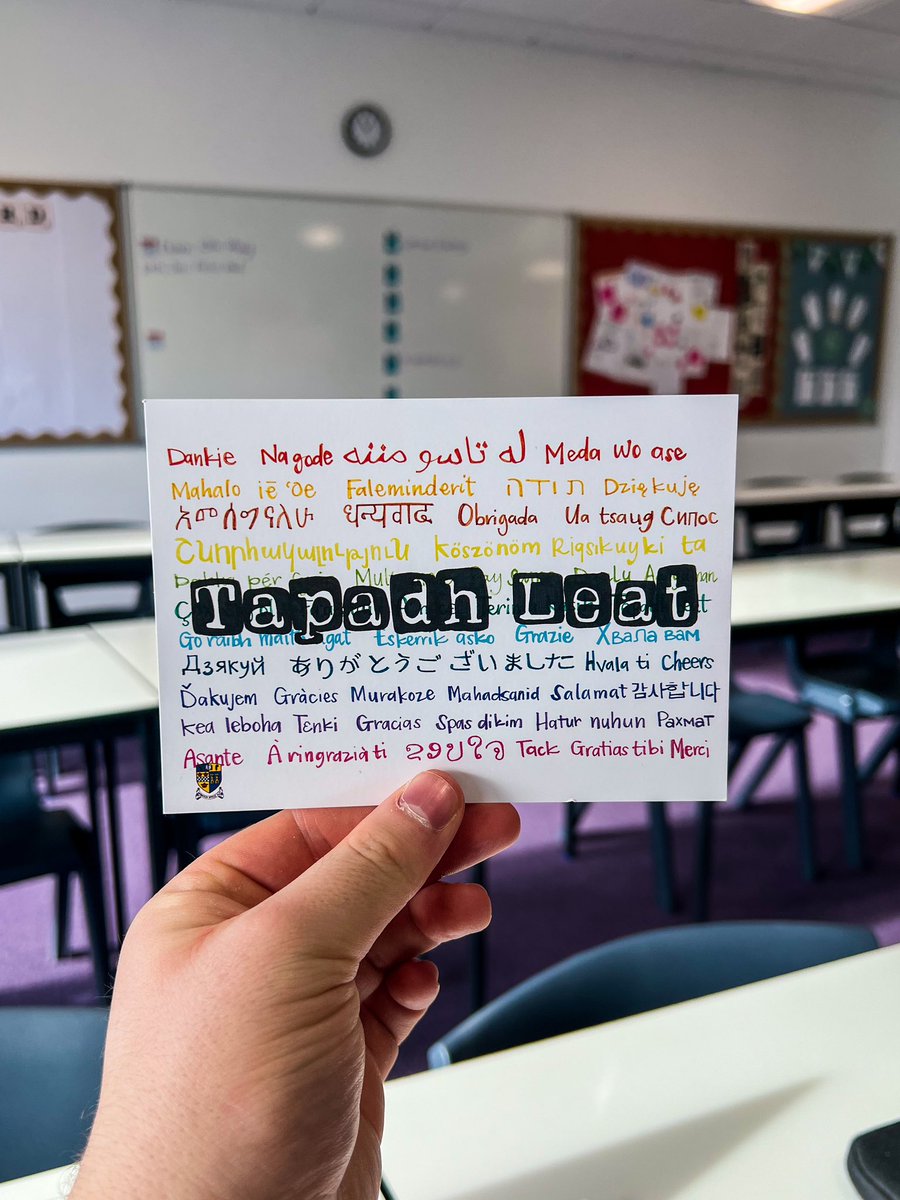 Dankie Nagode له تاسو مننه Meda wo ase
Mahalo iē ‘Oe Faleminderit תודה Dziękuję
አመሰግናለሁ धन्यवाद Obrigada Ua tsaug Сипос
Շնորհակալություն Köszönöm Riqsikuyki ta
þér
Tapadh Leat
Go raibh agat Eskerrik asko Grazie Хвала вам
Дзякуй ありがとうございました Hvala ti Cheers
Ďakujem Gràcies Murakoze Mahadsanid Salamat 감사합니다
Kea leboha Tenki Gracias Spas dikim Hatur nuhun Рахмат
Asante À ringrazià ti ຂອບໃຈ Tack Gratias tibi Merci